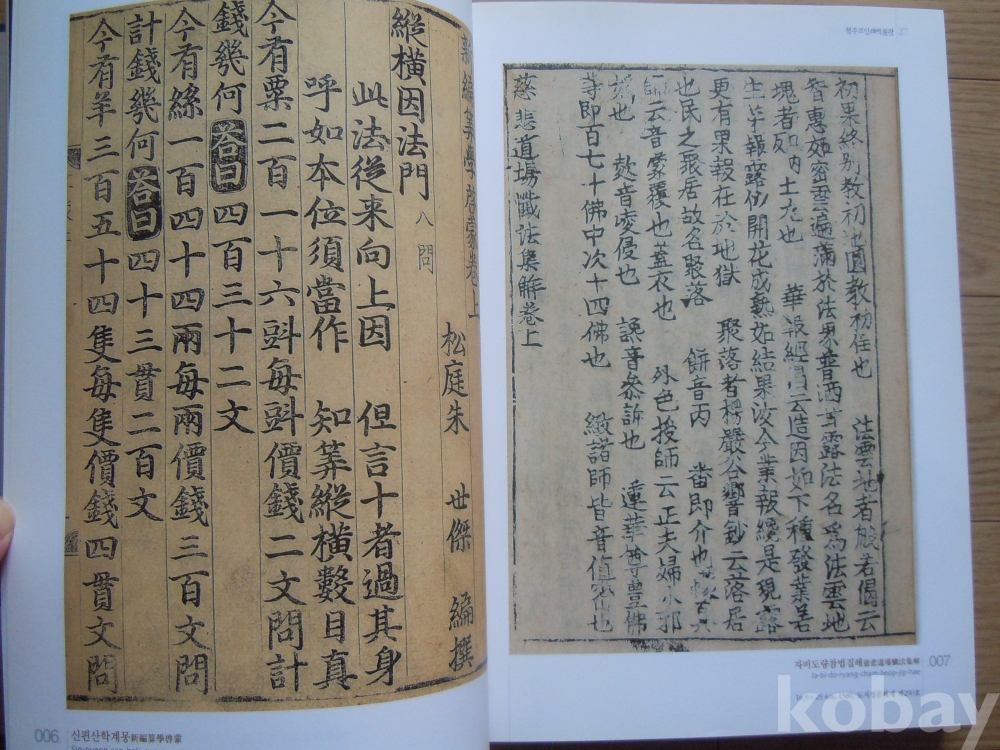 新編算學啓蒙卷上
松庭朱 世傑 編撰
縱橫因法門 八問
此法從来向上因 但言十者過其身
呼如本位須當作 知筭縱橫數目真
今有粟二百一十六㪷每㪷價錢二文問計
錢幾何 荅曰 四百三十二文
今有絲一百四十四兩每兩價錢三百文問
計錢幾何 荅曰 四十三貫二百文
今有羊三百五十四隻每隻價錢四貫文問
006
신편산학계몽新編算學啓蒙
청주고인쇄박물관 27
初果終別教初地圓教初住也 法雲地者般若偈云
智惠如密雲遍滿於法界普洒甘露法名為法雲地
塊者
土也
更有果報在於地獄 聚落者楞嚴谷響鈔云落居
也民之聚居故名聚落 餅音丙 畨即介也
云音蒙覆也蓋衣也 外色挍師云正夫婦
也 音侵也 讒音参訴也 蓮華尊豊佛
等即百七十佛中次十四佛也 緻諸師皆音值密也
慈悲道場懺法集解卷上
자비도량참법집해慈悲道場懺法集解
Ja-bi-do-ryang-cham-beop-jip-hae
007
kobay